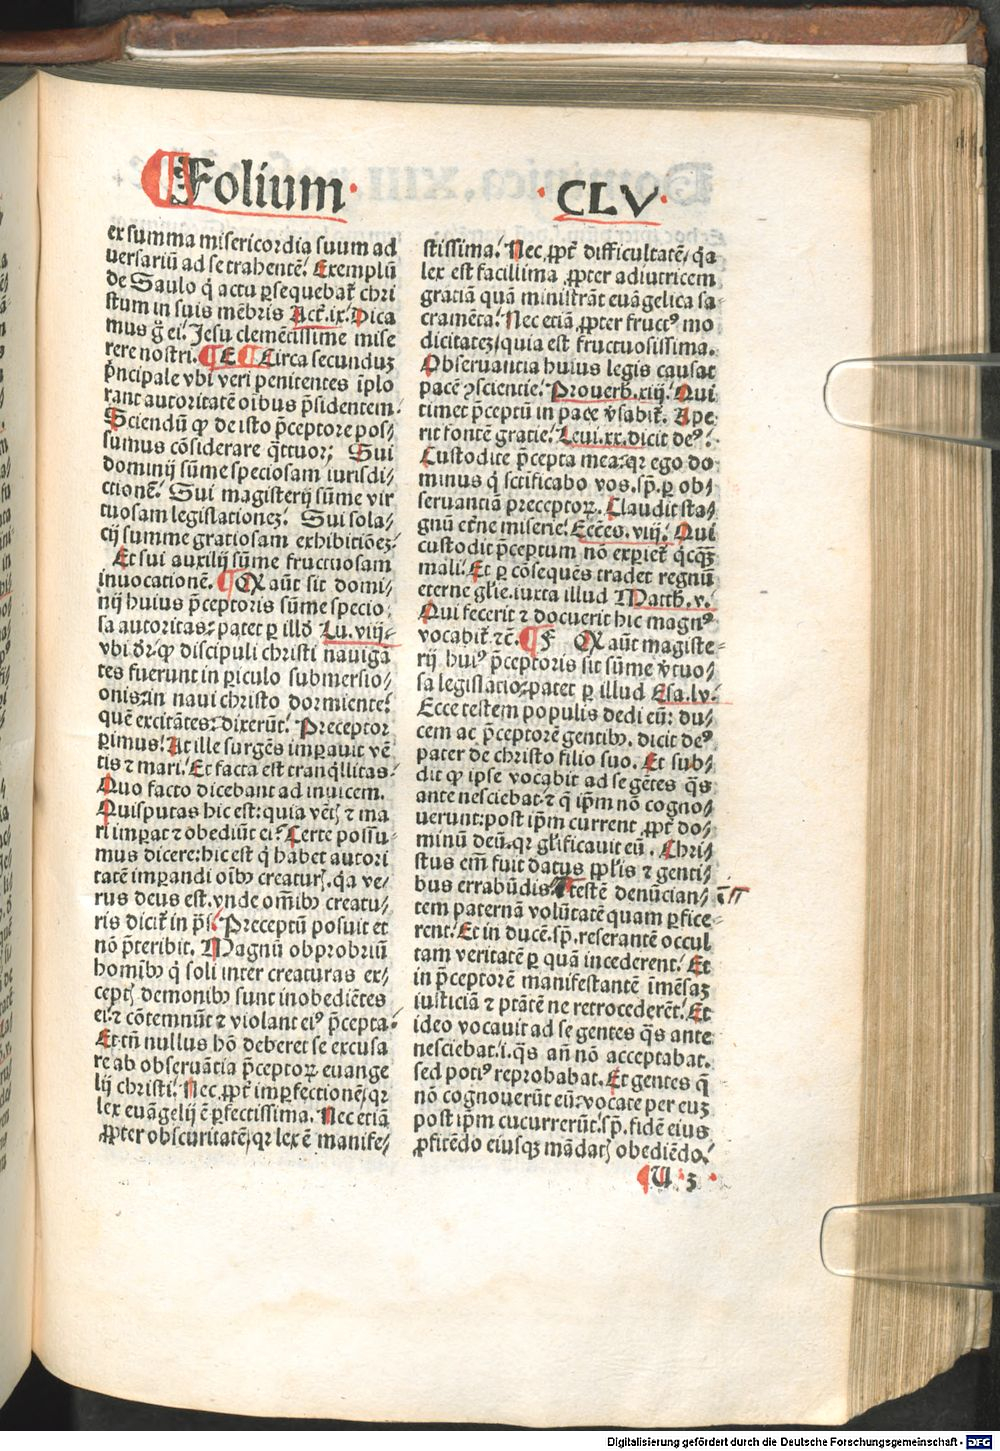 Folium
CLV
ex summa misericordia suum ad
uersariū ad se trahentē. Exemplū
de Saulo q̄ actu ꝑsequebat᷑ chri
stum in suis mēbris Act᷑.ix. Dica
mus g̊ ei. Jesu clemētissime mise
rere nostri. E Circa secunduꝫ
p̄ncipale vbi veri penitentes īplo
rant autoritatē oībus p̄sidentem.
Sciendū ꝙ de isto p̄ceptore pos/
sumus cōsiderare q̄ttuor: Sui
dominij sūme speciosam iurisdi/
ctionē. Sui magisterij sūme vir
tuosam legislationeꝫ. Sui sola/
cij summe gratiosam exhibitiōeꝫ:
Et sui auxilij sūme fructuosam
inuocationē. QX aūt sit domi/
nij huius p̄ceptoris sūme specio
sa autoritas: patet ꝑ illđ Lu.viij.
vbi dr̄ ꝙ discipuli christi nauigā
tes fuerunt in ꝑiculo submersio/
onis: in naui christo dormiente.
quē excitātes: dixerūt. Preceptor
ꝑimus. At ille surgēs imꝑauit vē
tis ⁊ mari. Et facta est tranq̄llitas.
Quo facto dicebant ad inuicem.
Quisputas hic est: quia vētꝭ ⁊ ma
ri imꝑat ⁊ obediūt ei? Certe possu/
mus dicere: hic est q̄ habet autori
tatē imꝑandi oībꝰ creaturꝭ. q̄a ve/
rus deus est. vnde omībꝰ creatu/
ris dicit᷑ in p̄s. Preceptū posuit et
nō p̄teribit. Magnū obprobriū
homībꝰ q̄ soli inter creaturas ex/
ceptꝭ demonibꝰ sunt inobediētes
ei: ⁊ cōtemnūt ⁊ violant eiꝰ p̄cepta.
Et tn̄ nullus hō deberet se excusa
re ab obseruātia p̄ceptoꝝ euange
lij christi. Nec ꝓpt᷑ imꝑfectionē/ qꝛ
lex euāgelij ē ꝑfectissima. Nec etiā
ꝓpter obscuritatē/ qꝛ lex ē manife/
stissima. Nec ꝓpt᷑ difficultatē/ q̄a
lex est facillima ꝓpter adiutricem
gratiā quā ministrāt euāgelica sa/
cramēta. Nec etiā ꝓpter fructꝰ mo
dicitateꝫ/ quia est fructuosissima.
Obseruantia huius legis causat
pacē ꝯscientie. Prouerb.xiij. Qui
timet p̄ceptū in pace v̓sabit᷑. Ape
rit fontē gratie. Leui.xx. dicit deꝰ:
Custodite p̄cepta mea: qꝛ ego do/
minus q̄ sctīficabo vos. sp̄. ꝑ ob/
seruantiā preceptoꝝ. Claudit sta/
gnū etn̄e miserie. Eccēs.viij. Qui
custodit p̄ceptum nō exꝑiet᷑ q̄cq̄ꝫ
mali. Et ꝑ cōsequēs tradet regnū
eterne glie. iuxta illud Matth.v.
Qui fecerit ⁊ docuerit hic magnꝰ
vocabit᷑ ⁊c̄. F QX aūt magiste/
rij huiꝰ p̄ceptoris sit sūme v̓tuo/
sa legislatio: patet ꝑ illud Esa.lv.
Ecce testem populis dedi eū: du/
cem ac p̄ceptorē gentibꝰ. dicit deꝰ
pater de christo filio suo. Et sub/
dit ꝙ ipse vocabit ad se gētes q̄s
ante nesciebat: ⁊ q̄ ip̄m nō cogno/
uerunt: post ip̄m current ꝓpt᷑ do/
minū deū. qꝛ gl̄ificauit eū. Chri/
stus em̄ fuit datus ppl̄is ⁊ genti/
bus errabūdis. testē denūcian/
tem paternā volūtatē quam ꝑfice/
rent. Et in ducē. sp̄. reserantē occul
tam veritatē ꝑ quā incederent. Et
in p̄ceptorē manifestantē īmēsaꝫ
iusticiā ⁊ ptātē ne retrocederēt. Et
ideo vocauit ad se gentes q̄s ante
nesciebat. i. q̄s an̄ nō acceptabat.
sed potiꝰ reprobabat. Et gentes q̄
nō cognouerūt eū: vocate per euꝫ
post ip̄m cucurrerūt. sp̄. fidē eius
ꝓfitēdo eiusqꝫ mādatꝭ obediēdo.
U 3
Digitalisierung gefördert durch die Deutsche Forschungsgemeinschaft - DFG